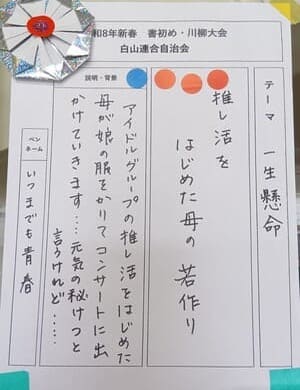 和8年新春　書初め・川柳大会
白山連合自治会
テーマ　一生懸命
推し活を
はじめた母の　若作り
説明・背景
アイドルグループの推し活をはじめた
母が娘の服をかりてコンサートに出
かけていきます…元気の秘けつと
言うけれど……
ペン
ネーム
いつまでも青春